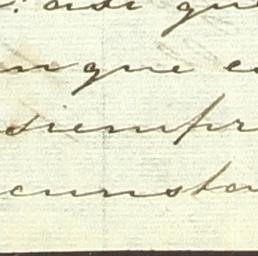 asi que
unque es
siempr
cunsta